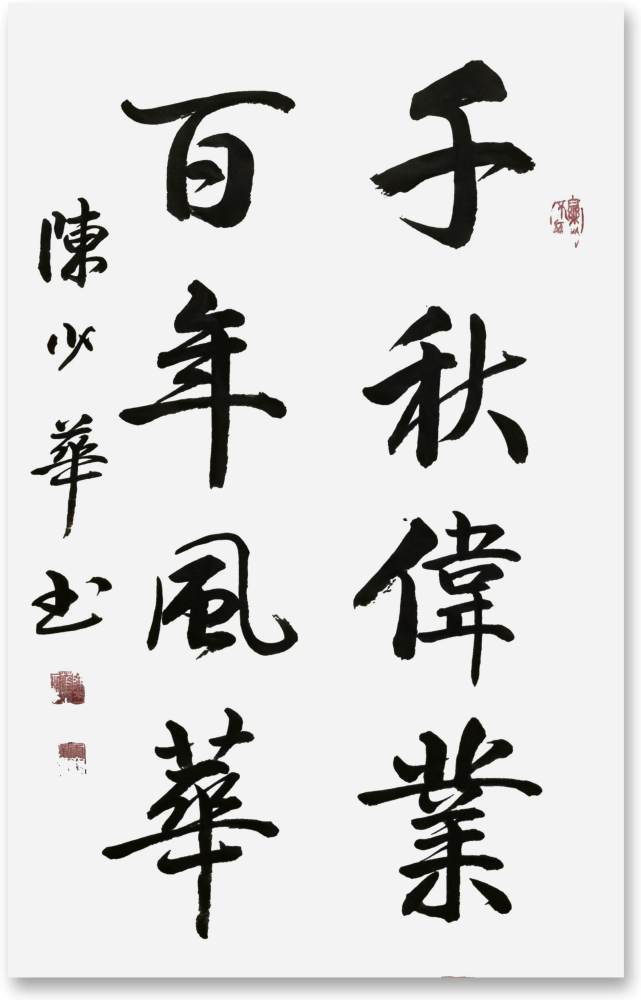 千秋偉業
百年風華
陳少華书